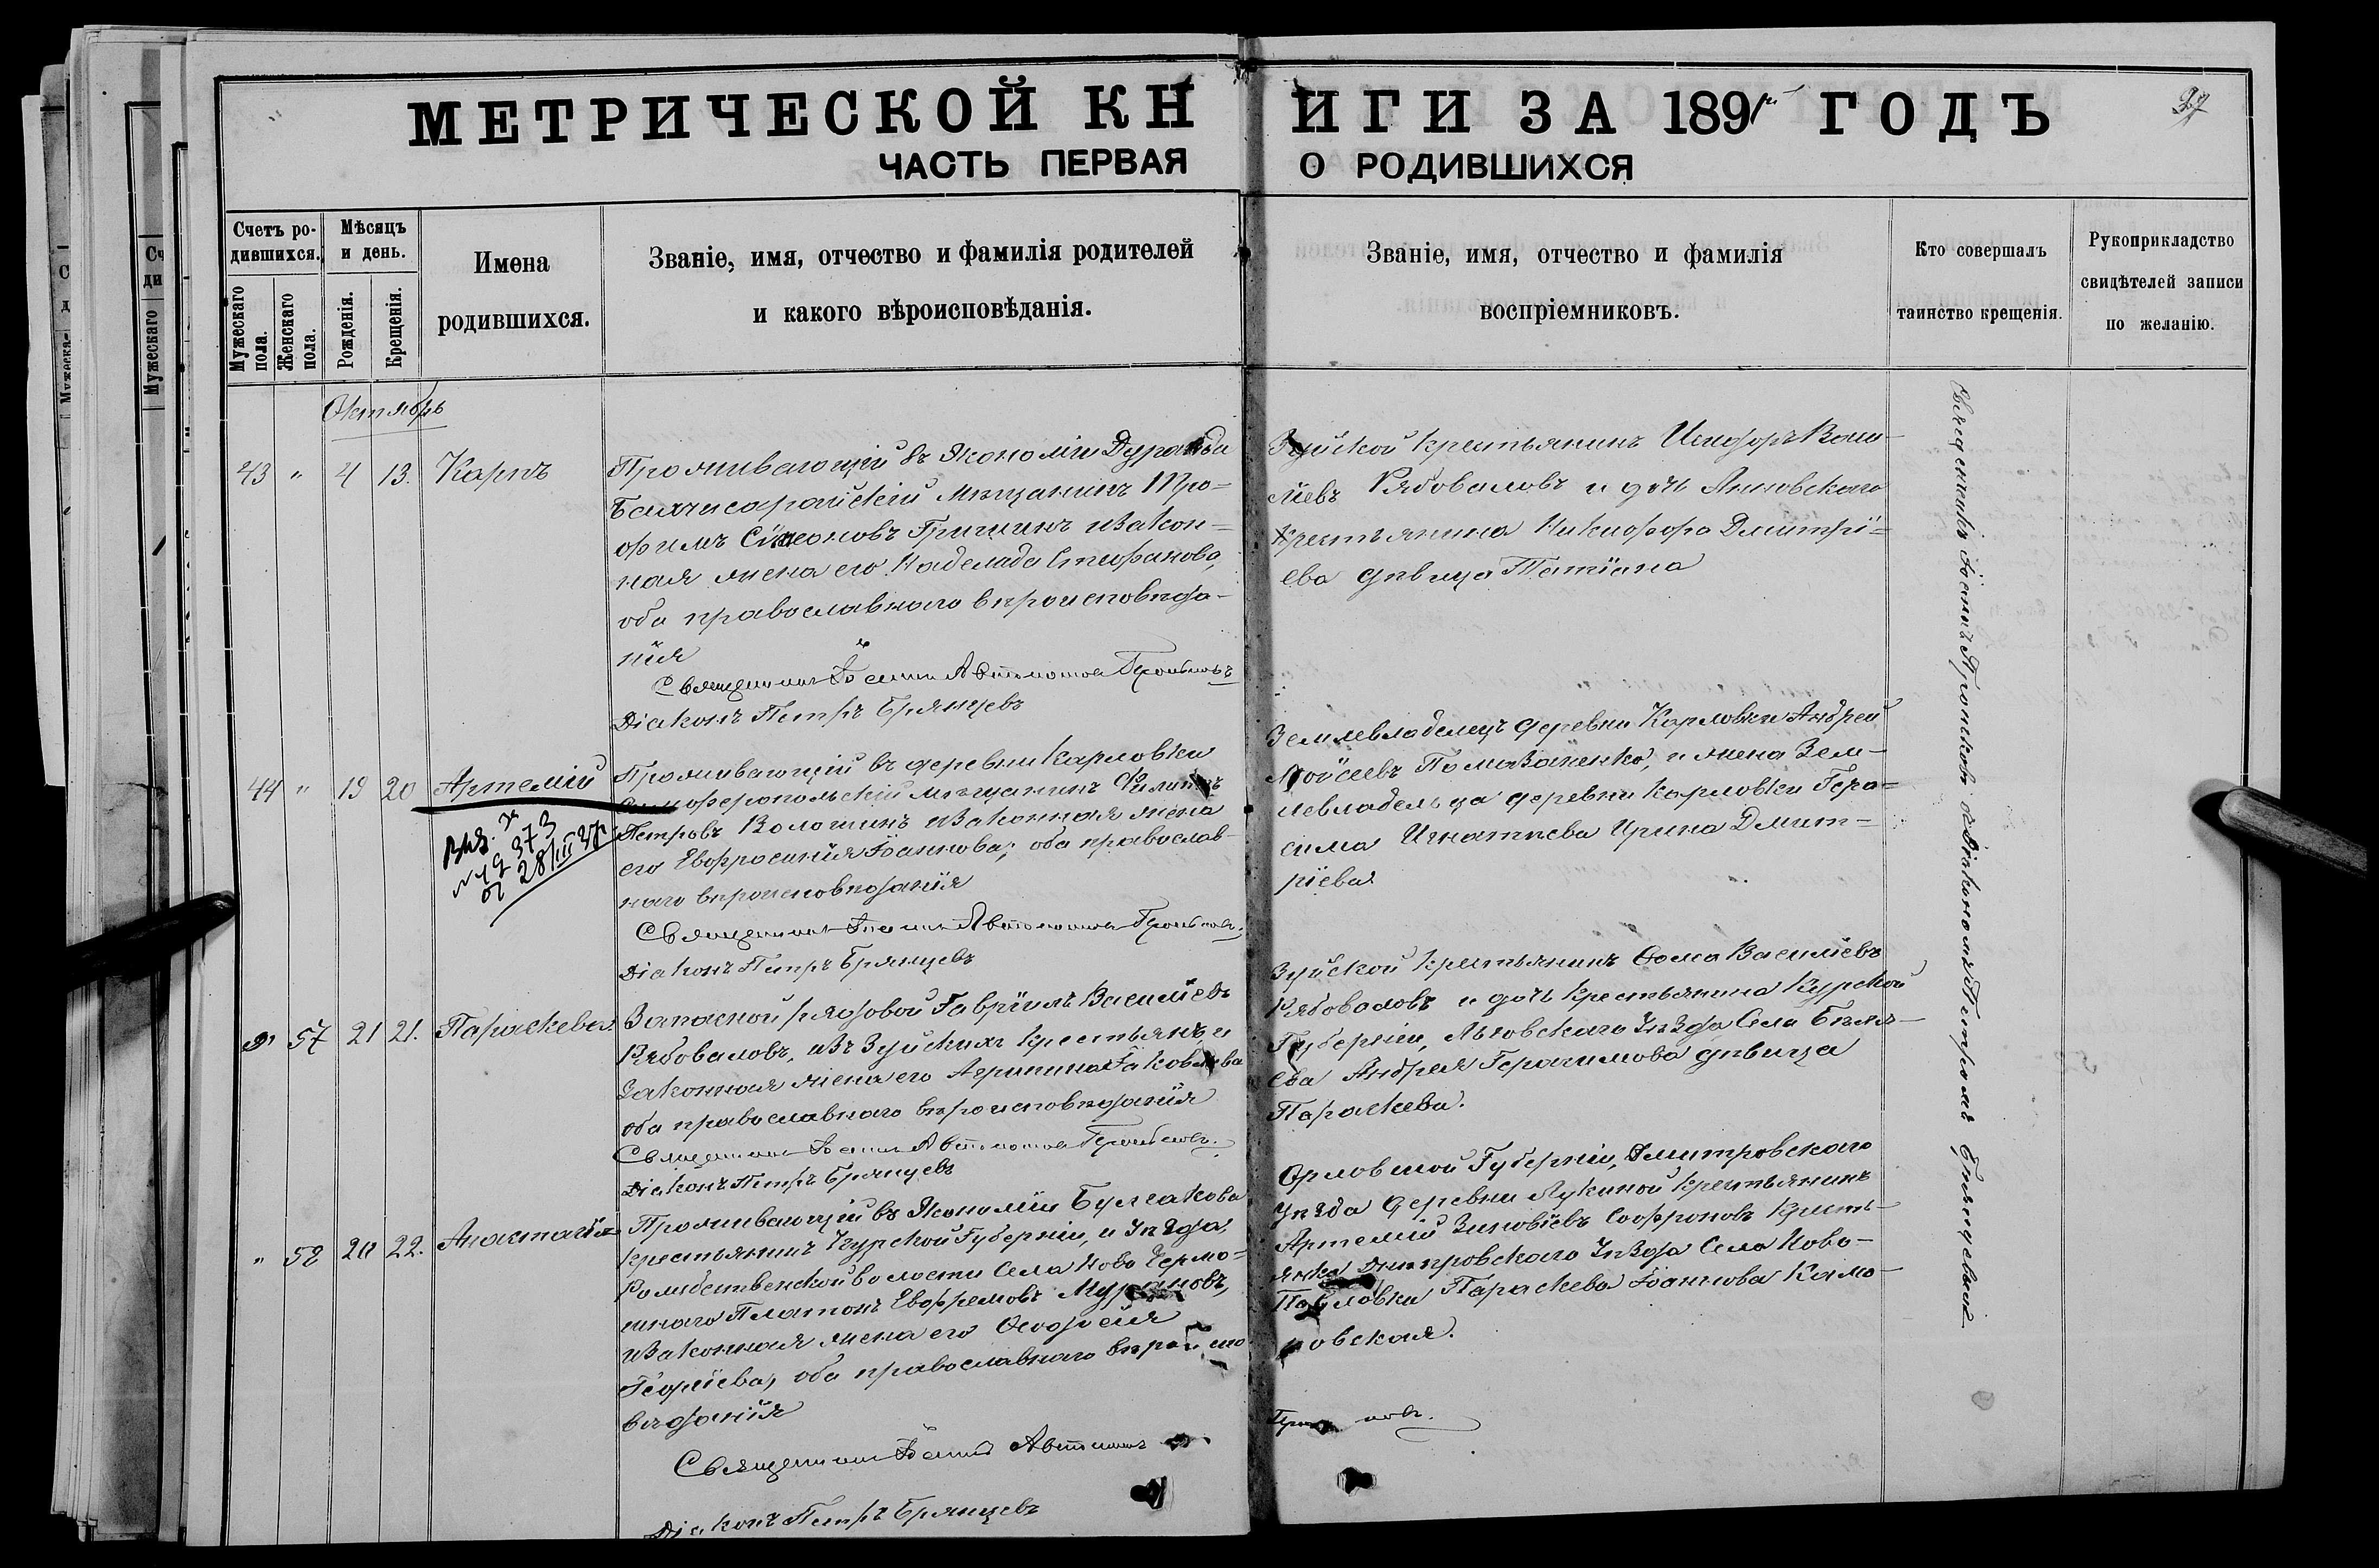 МЕТРИЧЕСКОЙ КНИГИ ЗА 189 ГОДЪ
27
ЧАСТЬ ПЕРВАЯ О РОДИВШИХСЯ
Счетъ ро-
дившихся.
Мужескаго пола.
Женскаго пола.
Мѣсяцъ
и день.
Рожденія.
Крещенія.
Имена
родившихся.
Званіе, имя, отчество и фамилія родителей
и какого вѣроисповѣданія.
Званіе, имя, отчество и фамилія
воспріемниковъ.
Кто совершалъ
таинство крещенія.
Рукоприкладство
свидѣтелей записи
по желанію.
Октябрь
43 " 4 13. Карпъ
Проживающій въ Экономіи
Бахчисарайскій мѣщанинъ Тро-
фимъ Симеоновъ Гришинъ и закон-
ная жена его Стефанова,
оба православнаго вѣроисповѣда-
нія
Священникъ Іоаннъ
Діаконъ Петръ Брянцевъ
Зуйской крестьянинъ Исидоръ Васи-
ліевъ Рябоваловъ и дочь Анновскаго
крестьянина Никифора Димитрі-
ева дѣвица Татіана
44 " 19 20 Артемій
Проживающій въ деревни Карловки
Симферопольскій мѣщанинъ Филиппъ
Петровъ Волошинъ и законная жена
его Евфросинія Іоаннова; оба православ-
наго вѣроисповѣданія
Священникъ Іоаннъ
Діаконъ Петръ Брянцевъ
373
28/III 37г
Землевладелецъ деревни Карловки Андрей
Моисеевъ и жена Зем-
левладельца деревни Карловки Гера-
сима Игнатіева Ирина Дмит-
ріева
" 57 21 21. Параскева
Запасной рядовой Гавріилъ Василіевъ
Рябоваловъ, изъ Зуйскихъ крестьянъ и
законная жена его Агрипина Іаковлева
оба православнаго вѣроисповѣданія
Священникъ Іоаннъ
Діаконъ Петръ Брянцевъ
Зуйской крестьянинъ Ѳома Василіевъ
Рябоваловъ и дочь крестьянина Курской
Губерніи, Льговскаго Уѣзда Села
Андрея Герасимова дѣвица
Параскева.
" 58 20 22. Анастасія
Проживающій въ Экономіи Булгакова
крестьянинъ Курской Губерніи, и Уѣзда,
Рождественской волости Села Ново
Платонъ Евфремовъ
и законная жена его Ѳеодосія
Георгіева, оба православнаго вѣроиспо
вѣданія
Священникъ Іоаннъ
Діаконъ Петръ Брянцевъ
Орловской Губерніи, Дмитровскаго
Уѣзда деревни Лукиной крестьянинъ
Артемій Зиновіевъ Софроновъ крест-
янка Днѣпровскаго Уѣзда Села Ново-
Павловки Параскева Іоаннова Кама-
ровская.
Священникъ Іоаннъ Троповъ съ Діакономъ Петромъ Брянцевымъ